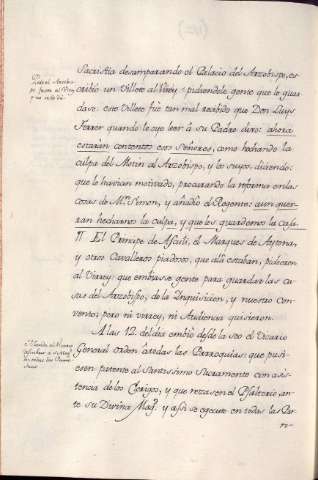 Sacristia desamparando el Palacio del Arzobispo, es-
cribio un Villete al Virrey pidiendole gente que le guar
dase: este Villete fuè tan mal recibido que Don Lluys
Ferrer quando le oyo leer à su Padre dixo: ahora
estaràn contentos esos Señores, como hechando la
culpa del Motin al Arzobispo, y los suyos diciendo:
que le havian motivado, procurando la reforma en las
cosas de Mº. Simon, y añadio el Regente: aun quer-
ran hecharnos la culpa, y que les guardemos la casa
¶ El Principe de Asculi, el Marques de Aytona,
y otros Cavalleros piadosos, que alli estaban, pidieron
al Virrey: que embiase gente para guardar las ca
sas del Arzobispo, de la Inquisicion, y nuestro Con-
vento; pero ni Virrey, ni Audiencia quisieron.
A las 12. del dia embiò desde la Seo el Vicario
General orden à todas las Parroquias: que pusi-
esen patente al Santissimo Sacramento con asis-
tencia de los Clerigos, y que rezasen el Psalterio an-
te su Divina Magᵈ. y assi se executò en todas las Par-
rr-